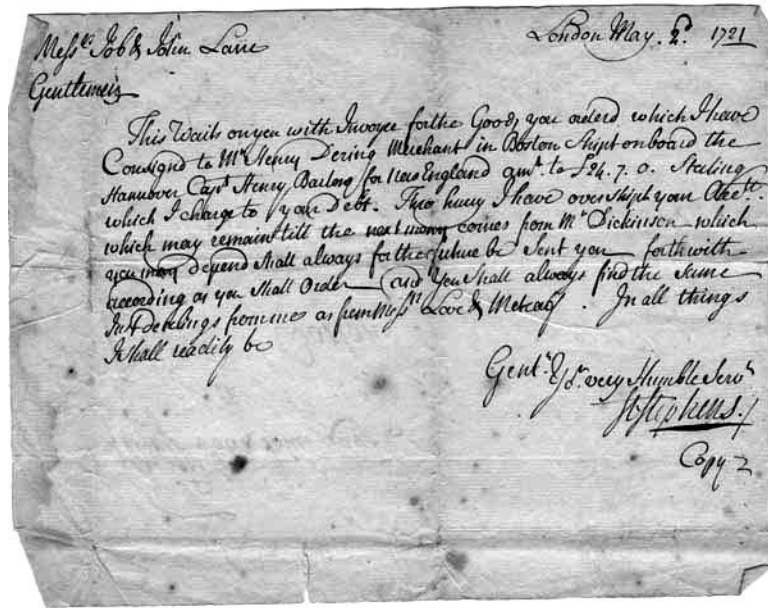 London May. 2d. 1721
Messrs Job & John Lane
Gentlemen
This Waits on you with Invoyce for the Goods you orderd which I have
Consignd to Mr Henry Dering Merchant in Boston Shipt on board the
Hannover Capt Henry Barlong for New England amt. to £24. 7. 0. Sterling
which I charge to your Debt. Tho hurry I have over Shipt your Acctt.
which may remain till the next mony comes from Mr Dickinson which
you may depend Shall always for the future be Sent you forthwith
according as you Shall Order and You Shall always find the same
Just dealings from me as from Messrs Love & Metcalf. In all things
I Shall readily be
Gentn. Yor. very Humble Servt
Stephens.
Copy